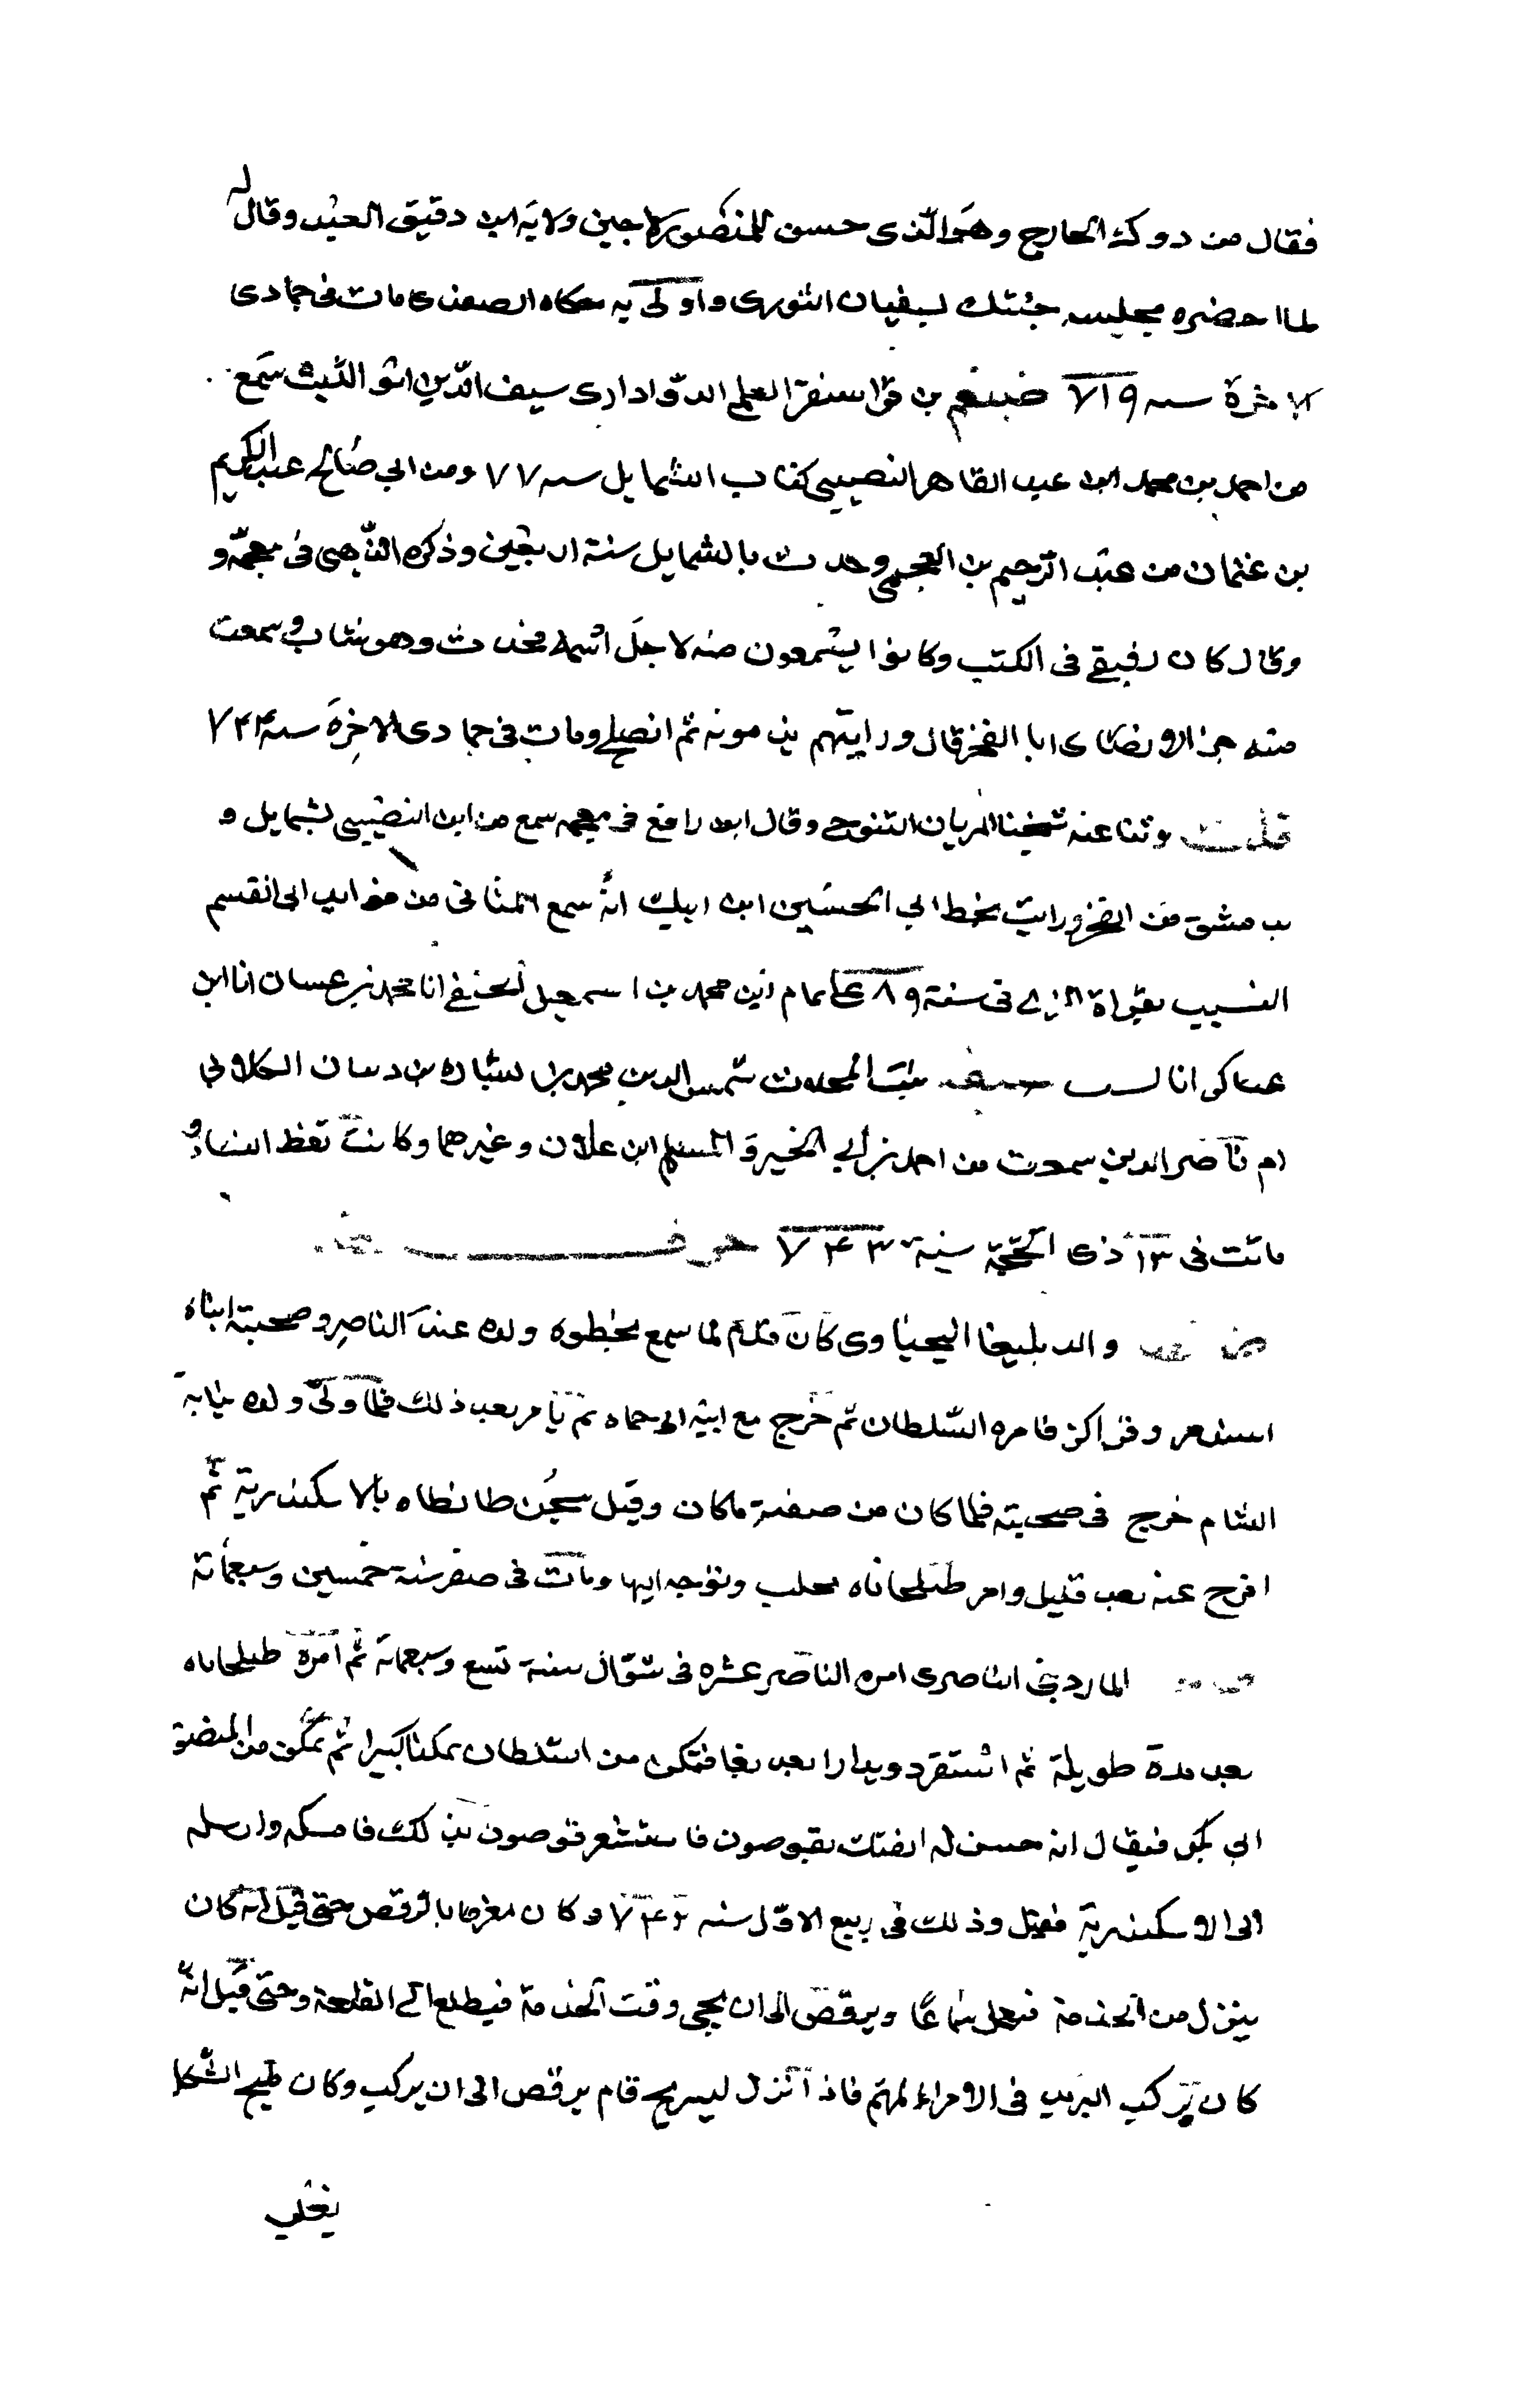 فقال من دوكة الحارج وهو الذى حسن للمنصور لاجين ولاية ابن دقيق العيد وقال له
لما احضره مجلسه جئتك لسفيان الثورى واولى به حكاه الصفدى مات فى جمادى
الاخرة سنه ٧١٩ ضيغم بن قراسنقر العلم الدوادارى سيف الدين ابو الليث سمع
من احمد بن محمد ابن عبد القاهر النصيبى كتاب الشمايل سنه ٧٧ ومن ابى صالح عبد الكريم
بن عثمان من عبد الرحيم بن العجمى وحدث بالشمايل سنة اربعين وذكره الذهبى فى معجمه و
وقال كان رفيقى فى الكتب وكانوا يسمعون منه لاجل اسمه محدث وهو شاب وسمعت
منه جزا الانصارى ابا الفخر قال ورايتهم يذمونه ثم انصلح ومات فى جمادى الاخرة سنه ٧٤٣
قلت وثنا عنه شيخنا البرهان التنوخى وقال ابن رافع فى معجمه سمع من ابن النصيبى لشمايل و
بدمشق من الفخر ورايت بخط ابى الحسين ابن ايبك انه سمع الثانى من فوايد ابى القسم
النسيب بقراة المزى فى سنة ٨٩ على امام زين محمد بن اسمعيل الحنفى انا محمد بن غسان انا ابن
عساكر انا النسيب ضيفة بنت المحدث شمس الدين محمد بن
ام ناصر الدين سمعت من احمد بن ابى الخير و المسلم ابن علان وغيرهما وكانت تعظ النساء و
ماتت فى ١٣ ذى الحجة سنة ٧٤٣ حرف
والد يلبغا اليحياوى كان قدم لما سمع بحظوة ولده عند الناصر وصحبته ابناه
اسندمر وقراكز فامره السلطان ثم خرج مع ابنه الى حماه ثم تامر بعد ذلك فلما ولى ولده نيابة
الشام خرج فى صحبته فلما كان من صفته ما كان وقيل سجن طابطاه بالاسكندرية ثم
افرج عنه بعد قليل وامر طبلخاناه بحلب وتوجه اليها ومات فى صفر سنة خمسين وسبعماتة
الماردينى الناصرى امره الناصر عشره فى شوال سنة تسع وسبعماتة ثم امره طبلخاناه
بعد مدة طويلة ثم استقر دويدارا بعد بغا فتمكن من السلطان تمكنا كبيرا ثم تمكن من المنصور
ابى بكر فيقال انه حسن له الفتك بقوصون فاستشعر قوصون بذلك فامسكه وارسله
الى الاسكندرية فقتل وذلك فى ربيع الاول سنه ٧٤٢ وكان مغرما بالرقص حتى قيل انه كان
ينزل من الخدمة فيعمل سماعا ويرقص الى ان يجى وقت الخدمة فيطلع الى القلعة وحتى قيل انه
كان يركب البريد فى الامراء لمهم فاذا نزل ليسريح قام يرقص الى ان يركب وكان مليح الشكل